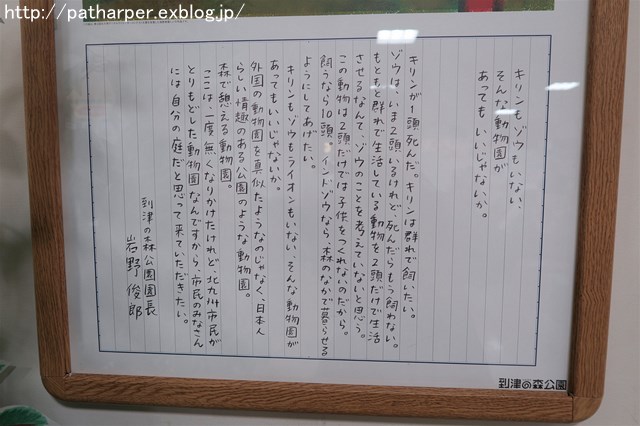 http://patharper.exblog.jp/
キリンもゾウもいない、
そんな動物園が
あってもいいじゃないか。
キリンが一頭死んだ。キリンは群れで飼いたい。
ゾウは、いま2頭いるけれど、死んだらもう飼わない。
もともと群れで生活している動物を2頭だけで生活
させるなんて、ゾウのことを考えていないと思う。
この動物は2頭だけでは子作をつくれないのだから。
飼うなら10頭。インドゾウなら、森のなかで暮らせる
ようにしてあげたい。
キリンもゾウもライオンもいない、そんな動物園が
あってもいいじゃないか。
外国の動物園を真似たようなのじゃなく、日本人
らしい情趣のある公園のような動物園。
森で憩える動物園。
ここは、一度無くなりかけたけれど、北九州市民が
とりもどした動物園なんですから、市民のみなさん
には自分の庭だと思って来ていただきたい。
到津の森公園園長
岩野俊郎
到津の森公園